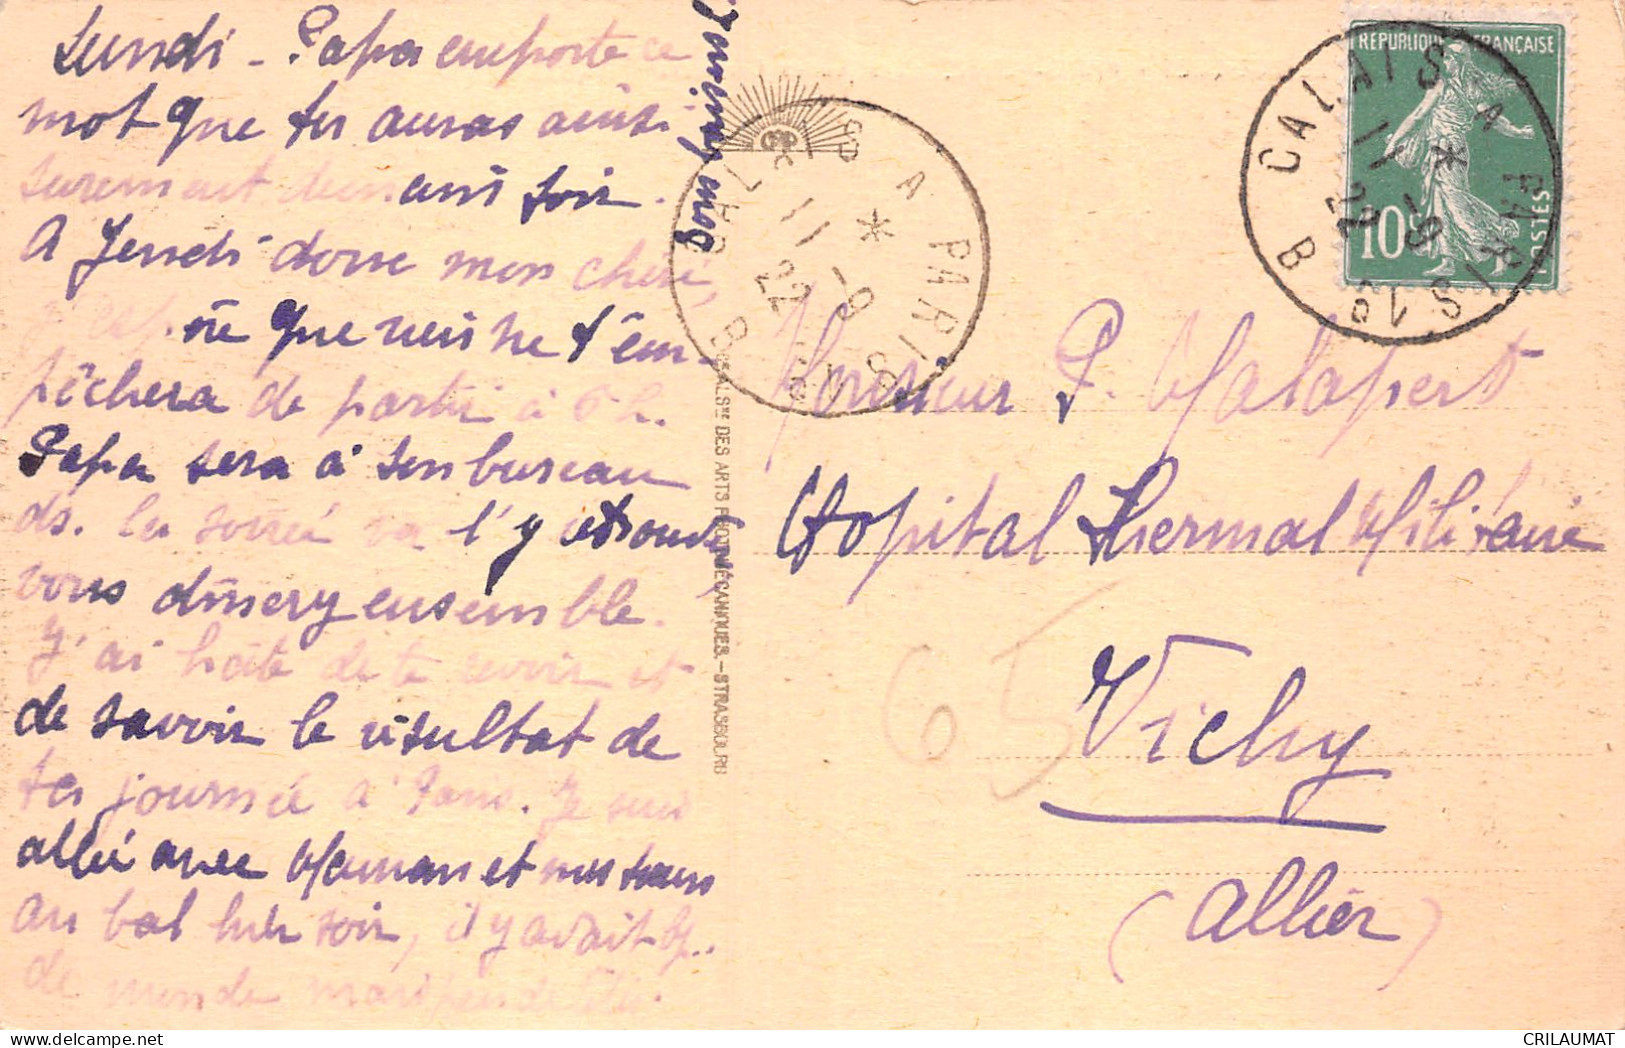 Lundi - Papa emporte ce
mot que tu auras ainsi
surement demain soir.
A Jeudi donc mon chéri,
que rien ne t'em-
pêchera de partir à 6 h.
Papa sera à son bureau
ds. la soirée va l'y retrouver
vous dinerez ensemble.
J'ai hâte de te revoir et
de savoir le résultat de
ta journée à Paris. Je suis
allée avec Maman et
au bal hier soir, il y avait
de monde mais peu de
REPUBLIQUE FRANÇAISE
10c
POSTES
CALAIS A PARIS 1º
B
*
11 -9
22
CALAIS A PARIS
B
*
11 -9
22
Monsieur P. Malapert
Hopital Thermal Militaire
Vichy
(Allier)
65
DES ARTS PHOTOMÉCANIQUES.-STRASBOURG
CRILAUMAT